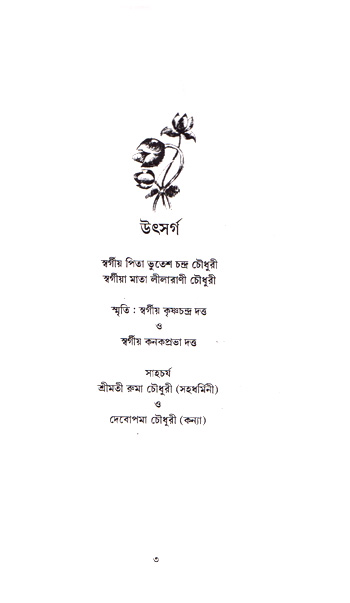 উৎসর্গ
স্বর্গীয় পিতা ভুতেশ চন্দ্র চৌধুরী
স্বর্গীয়া মাতা লীলারাণী চৌধুরী
স্মৃতি : স্বর্গীয় কৃষ্ণচন্দ্র দত্ত
ও
স্বর্গীয় কনকপ্রভা দত্ত
সাহচর্য
শ্রীমতী রুমা চৌধুরী (সহধর্মিনী)
ও
দেবোপমা চৌধুরী (কন্যা)
৩